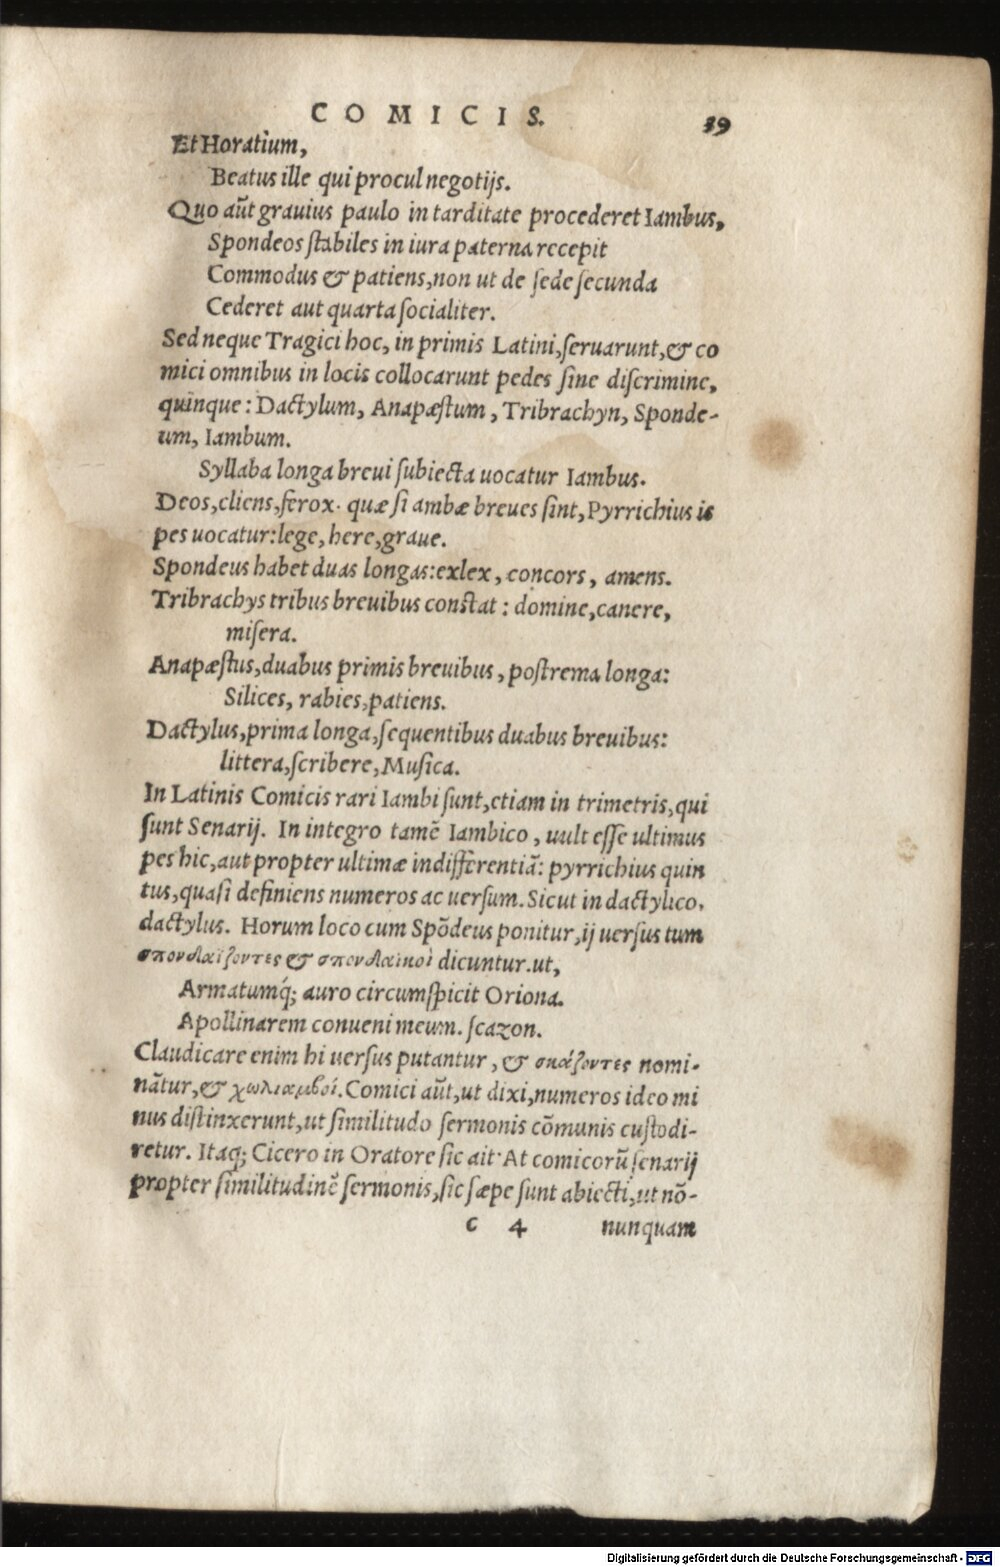 COMICIS. 39
Et Horatium,
Beatus ille qui procul negotijs.
Quo aũt grauius paulo in tarditate procederet Iambus,
Spondeos stabiles in iura paterna recepit
Commodus & patiens, non ut de sede secunda
Cederet aut quarta socialiter.
Sed neque Tragici hoc, in primis Latini, seruarunt, & co
mici omnibus in locis collocarunt pedes sine discrimine,
quinque: Dactylum, Anapæstum, Tribrachyn, Sponde-
um, Iambum.
Syllaba longa breui subiecta uocatur Iambus.
Deos, cliens, ferox. quæ si ambæ breues sint, Pyrrichius is
pes uocatur: lege, here, graue.
Spondeus habet duas longas: exlex, concors, amens.
Tribrachys tribus breuibus constat: domine, canere,
misera.
Anapæstus, duabus primis breuibus, postrema longa:
Silices, rabies, patiens.
Dactylus, prima longa, sequentibus duabus breuibus:
littera, scribere, Musica.
In Latinis Comicis rari Iambi sunt, etiam in trimetris, qui
sunt Senarij. In integro tamẽ Iambico, uult esse ultimus
pes hic, aut propter ultimæ indifferentiã: pyrrichius quin
tus, quasi definiens numeros ac uersum. Sicut in dactylico,
dactylus. Horum loco cum Spõdeus ponitur, ij uersus tum
σπονδαΐζοντες & σπονδαικοὶ dicuntur. ut,
Armatumq́; auro circumspicit Oriona.
Apollinarem conueni meum. scazon.
Claudicare enim hi uersus putantur, & σκάζοντες nomi-
nãtur, & χωλιαμβοί. Comici aũt, ut dixi, numeros ideo mi
nus distinxerunt, ut similitudo sermonis cõmunis custodi-
retur. Itaq; Cicero in Oratore sic ait. At comicorũ senarij
propter similitudinẽ sermonis, sic sæpe sunt abiecti, ut nõ-
C 4 nunquam
Digitalisierung gefördert durch die Deutsche Forschungsgemeinschaft - DFG